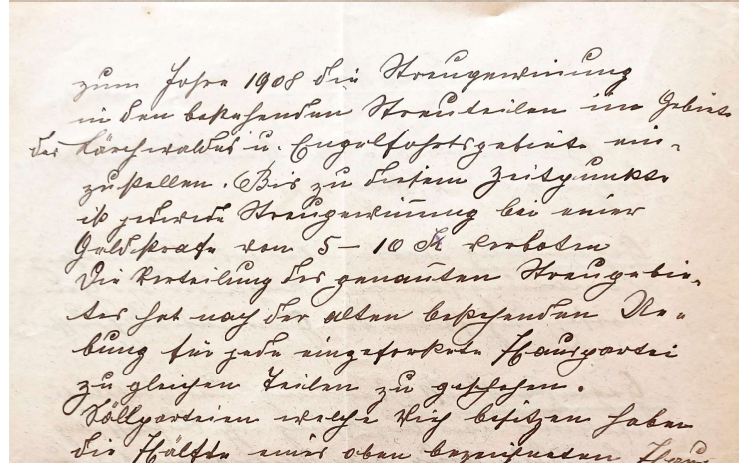 zum Jahre 1908 die Streugewinnung
in den bestehenden Streuteilen im Gebiete
des Lärchwaldes u. Engelfahrtsgebiete ein-
zustellen. Bis zu diesem Zeitpunkte
ist jedwede Streugewinnung bei einer
Geldstrafe von 5 – 10 K verboten
Die Verteilung des genannten Streugebie-
tes hat nach der alten bestehenden Ue-
bung für jede eingeforstete Hauspartei
zu gleichen Teilen zu geschehen.
Söllparteien welche Vich besitzen haben
die Hälfte eines oben bezeichneten